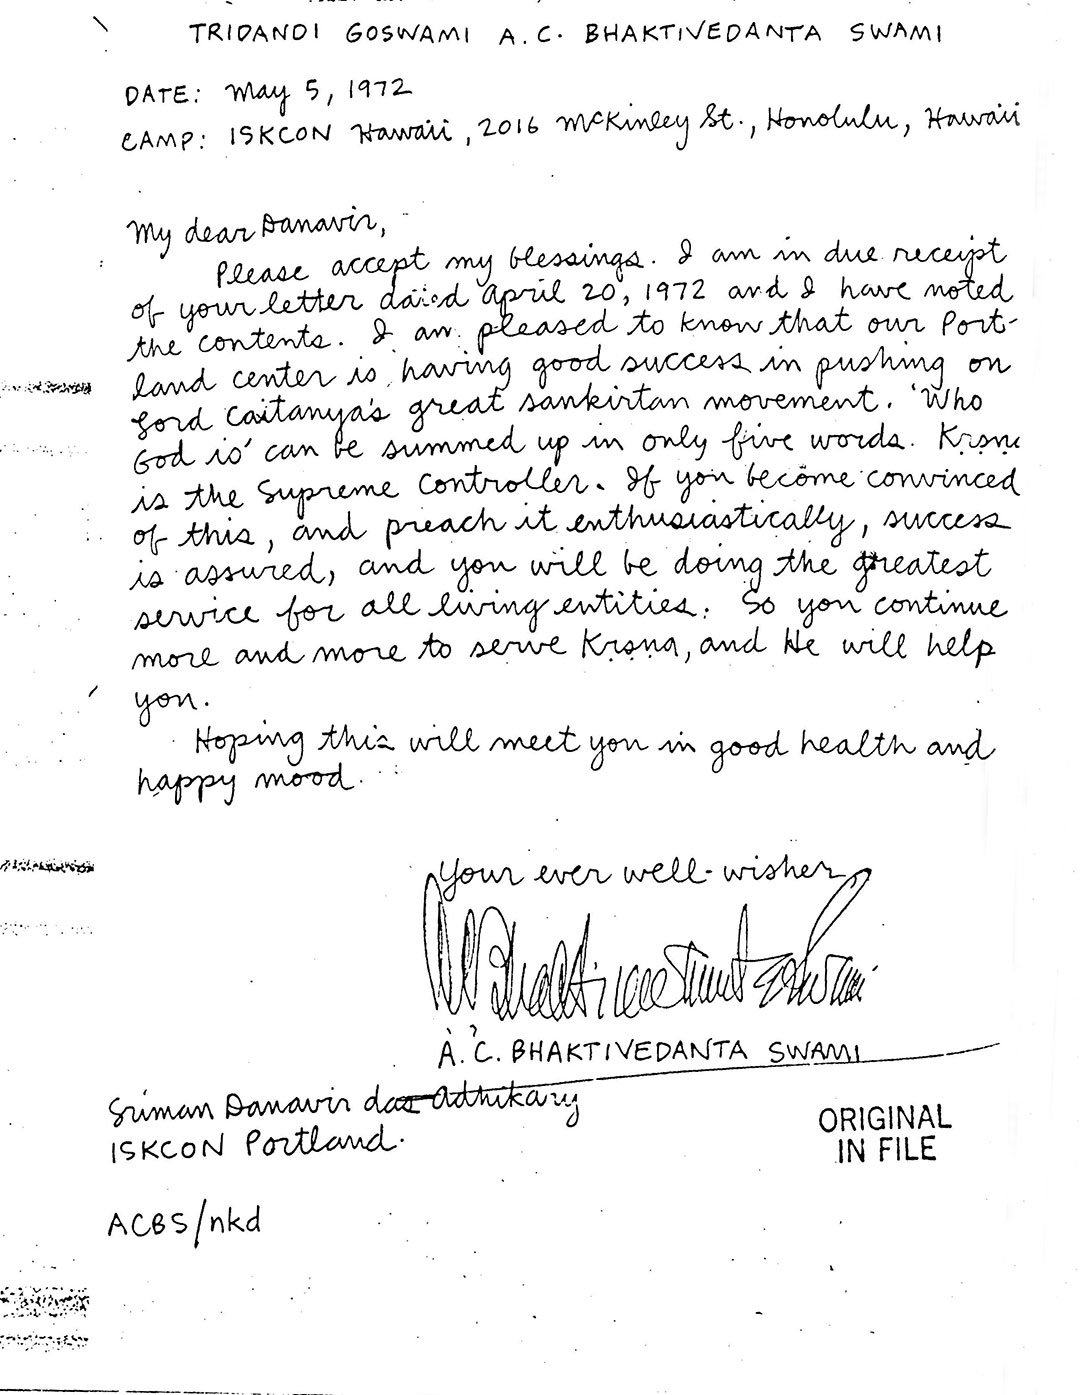 TRIDANDI GOSWAMI A.C. BHAKTIVEDANTA SWAMI
DATE: May 5, 1972
CAMP: ISKCON Hawaii, 2016 McKinley St., Honolulu, Hawaii
My dear Danavir,
Please accept my blessings. I am in due receipt
of your letter dated April 20, 1972 and I have noted
the contents. I am pleased to know that our Port-
land center is having good success in pushing on
Lord Caitanya's great sankirtan movement. 'Who
God is' can be summed up in only five words. Kṛṣṇa
is the Supreme Controller. If you become convinced
of this, and preach it enthusiastically, success
is assured, and you will be doing the greatest
service for all living entities. So you continue
more and more to serve Kṛṣṇa, and He will help
you.
Hoping this will meet you in good health and
happy mood.
Your ever well-wisher
ACBhaktivedanta Swami
A.C. BHAKTIVEDANTA SWAMI
Sriman Danavir das Adhikary
ISKCON Portland.
ORIGINAL
IN FILE
ACBS/nkd